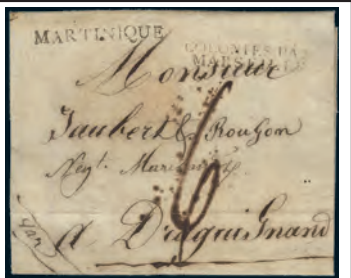 MARTINIQUE
COLONIES PAR
MARSEILLE
Monsieur
Jaubert & Roufson
Negt.
6
A Draguignand